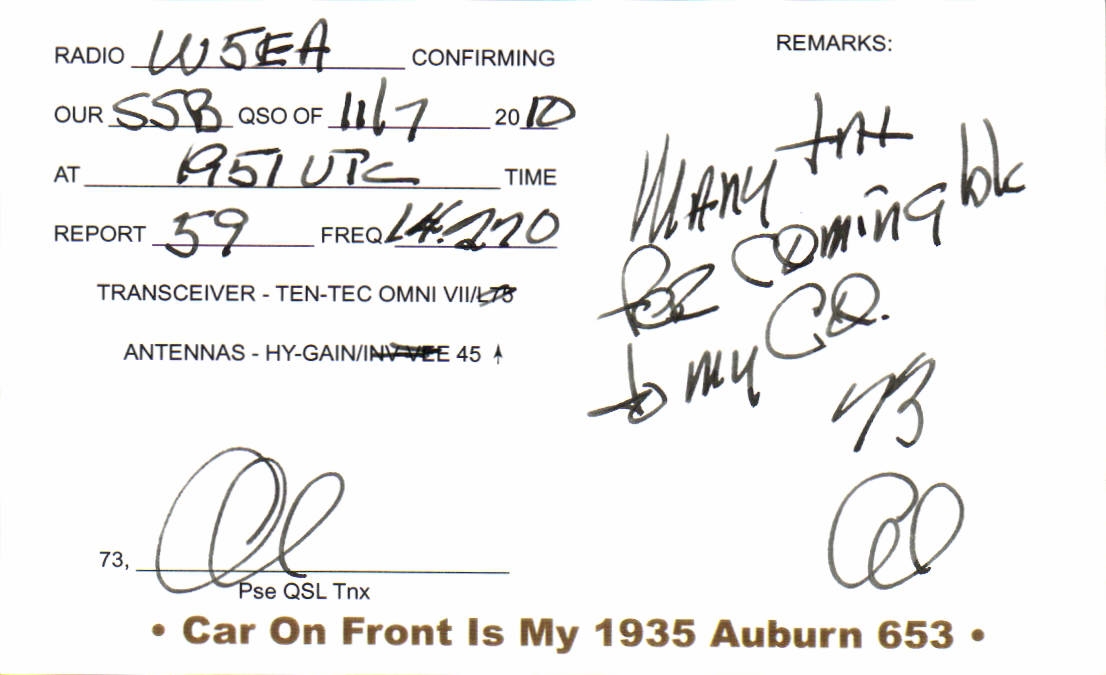 RADIO W5EA CONFIRMING
OUR SSB QSO OF 11/7 2010
AT 1951 UTC TIME
REPORT 59 FREQ 14.270
TRANSCEIVER - TEN-TEC OMNI VII/L7B
ANTENNAS - HY-GAIN/INV VEE 45 ↑
73,
Pse QSL Tnx
REMARKS:
MANY tnx
for coming bk
to my CQ.
73
Al
• Car On Front Is My 1935 Auburn 653 •